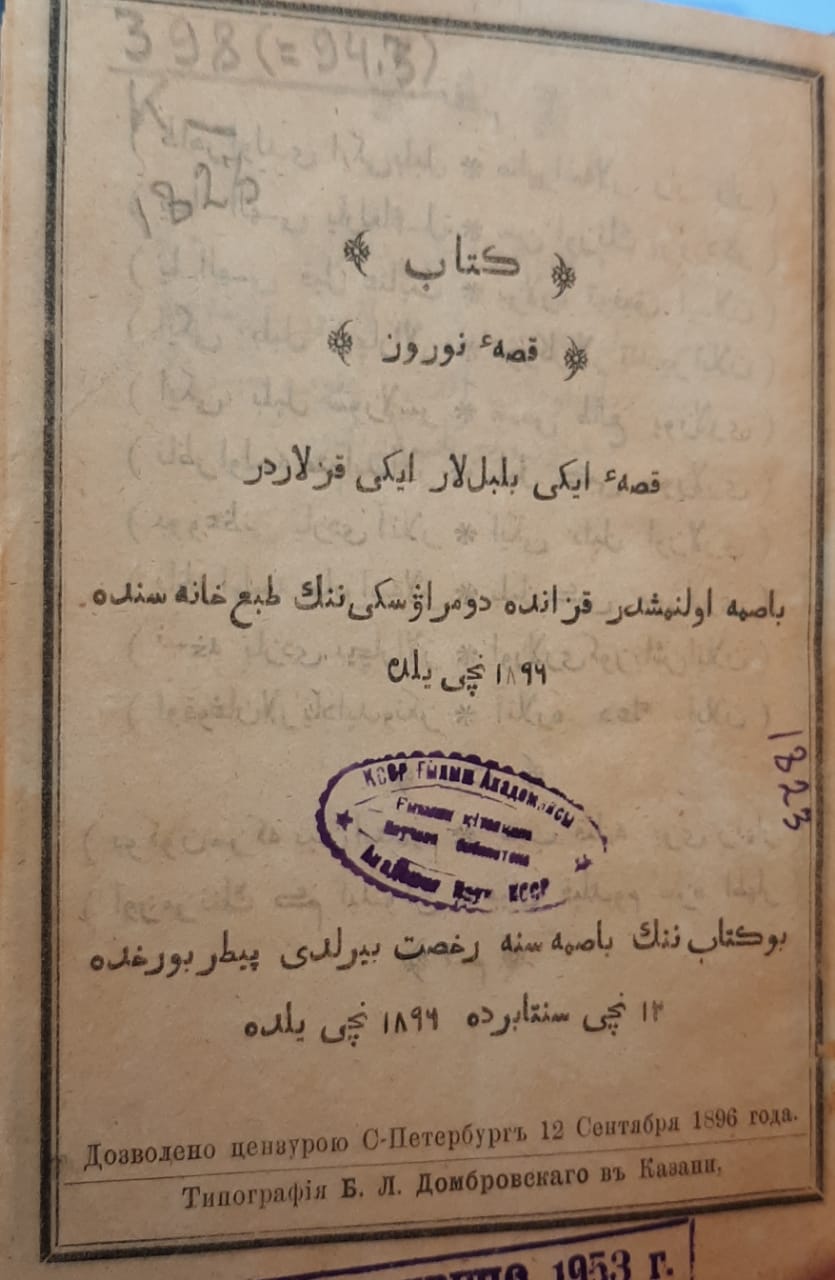 398 (=94.3)
К—
1823
﴿ كتاب ﴾
﴿ قصهٔ نورون ﴾
قصهٔ ایکی بلبللار ایکی قزلاردر
باصمه اولنمشدر قزانده دومراۋسكی ننك طبع خانه سنده
۱۸۹۶ نچی یلده
1823
КССР Ғылым Академиясы
Ғылыми кітапхана
Научная библиотека
Академии Наук КССР
بوكتاب ننك باصمه سنه رخصت بیرلدی پیطر بورخده
۱۲ نچی سنتابرده ۱۸۹۶ نچی یلده
Дозволено цензурою С-Петербургъ 12 Сентября 1896 года.
Типографія Б. Л. Домбровскаго въ Казани,
1953 г.